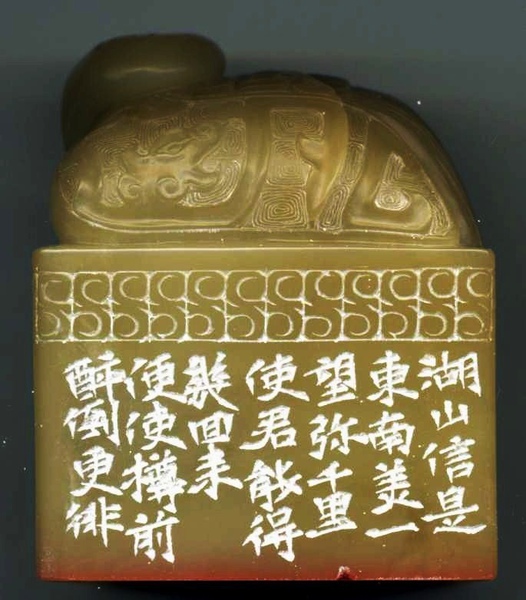 湖山信是
東南美一
望弥千里
使君能得
幾回来
便使樽前
醉倒更徘